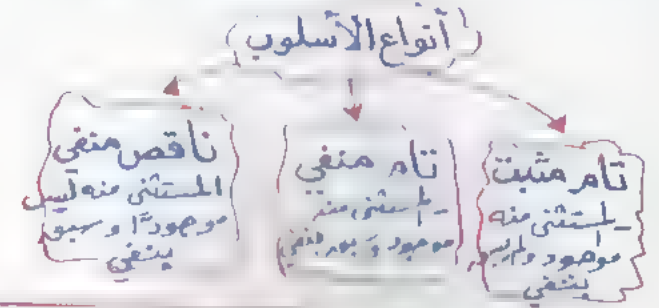 (أنواع الأسلوب)
تام مثبت
المستثنى منه
موجود ولم يسبق
بنفي
تام منفي
المستثنى منه
موجود و بنفي
ناقص منفي
المستثنى منه ليس
موجودًا وسبق
بنفي